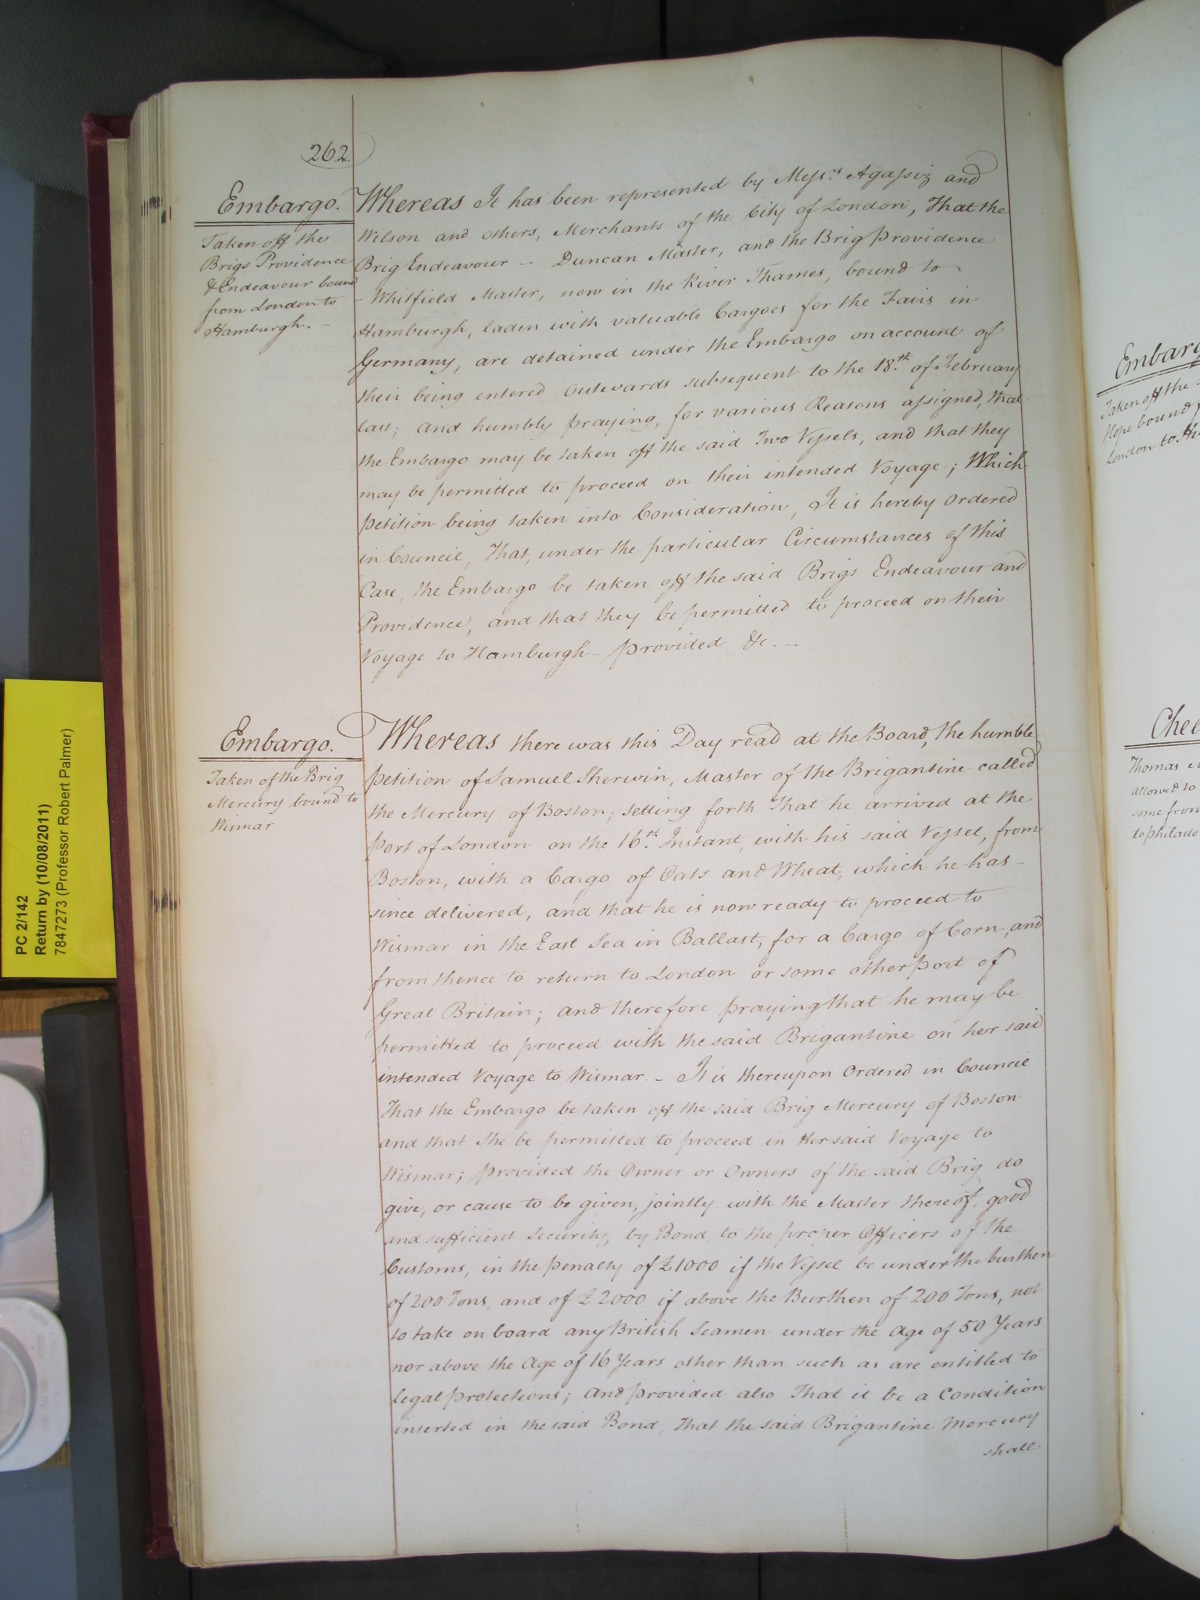 262.
Embargo.
Taken off the
Brigs Providence
& Endeavour bound
from London to
Hamburgh. –
Whereas It has been represented by Messrs. Agassiz and
Wilson and others, Merchants of the City of London, That the
Brig Endeavour – Duncan Master, and the Brig Providence
– Whitfield Master, now in the River Thames, bound to
Hamburgh, laden with valuable Cargoes for the Fairs in
Germany, are detained under the Embargo on account of
their being entered Outwards subsequent to the 18.th of February
last; and humbly praying, for various Reasons assigned, that
the Embargo may be taken off the said Two Vessels, and that they
may be permitted to proceed on their intended Voyage; Which
petition being taken into Consideration, It is hereby Ordered
in Council, That, under the particular Circumstances of this
Case, the Embargo be taken off the said Brigs Endeavour and
Providence, and that they be permitted to proceed on their
Voyage to Hamburgh – provided &c. –
Embargo.
Taken of the Brig
Mercury bound to
Wismar
Whereas there was this Day read at the Board, the humble
petition of Samuel Sherwin, Master of the Brigantine called
the Mercury of Boston; setting forth That he arrived at the
port of London on the 16.th Instant, with his said Vessel, from
Boston, with a Cargo of Oats and Wheat, which he has –
since delivered, and that he is now ready to proceed to
Wismar in the East Sea in Ballast, for a Cargo of Corn, and
from thence to return to London or some other port of
Great Britain; and therefore praying that he may be
permitted to proceed with the said Brigantine on her said
intended Voyage to Wismar. – It is thereupon Ordered in Council
That the Embargo be taken off the said Brig Mercury of Boston
and that She be permitted to proceed in Her said Voyage to
Wismar; provided the Owner or Owners of the said Brig do
give, or cause to be given, jointly with the Master thereof, good
and sufficient Security, by Bond, to the proper Officers of the
Customs, in the penalty of £1000 if the Vessel be under the burthen
of 200 Tons, and of £2000 if above the Burthen of 200 Tons, not
to take on board any British Seamen under the Age of 50 Years
nor above the Age of 16 Years other than such as are entitled to
legal protections; And provided also That it be a Condition
inserted in the said Bond, That the said Brigantine Mercury
shall
PC 2/142
Return by (10/08/2011)
7847273 (Professor Robert Palmer)
Taken off the
Hope bound
London to
Thomas
allowed to
some from